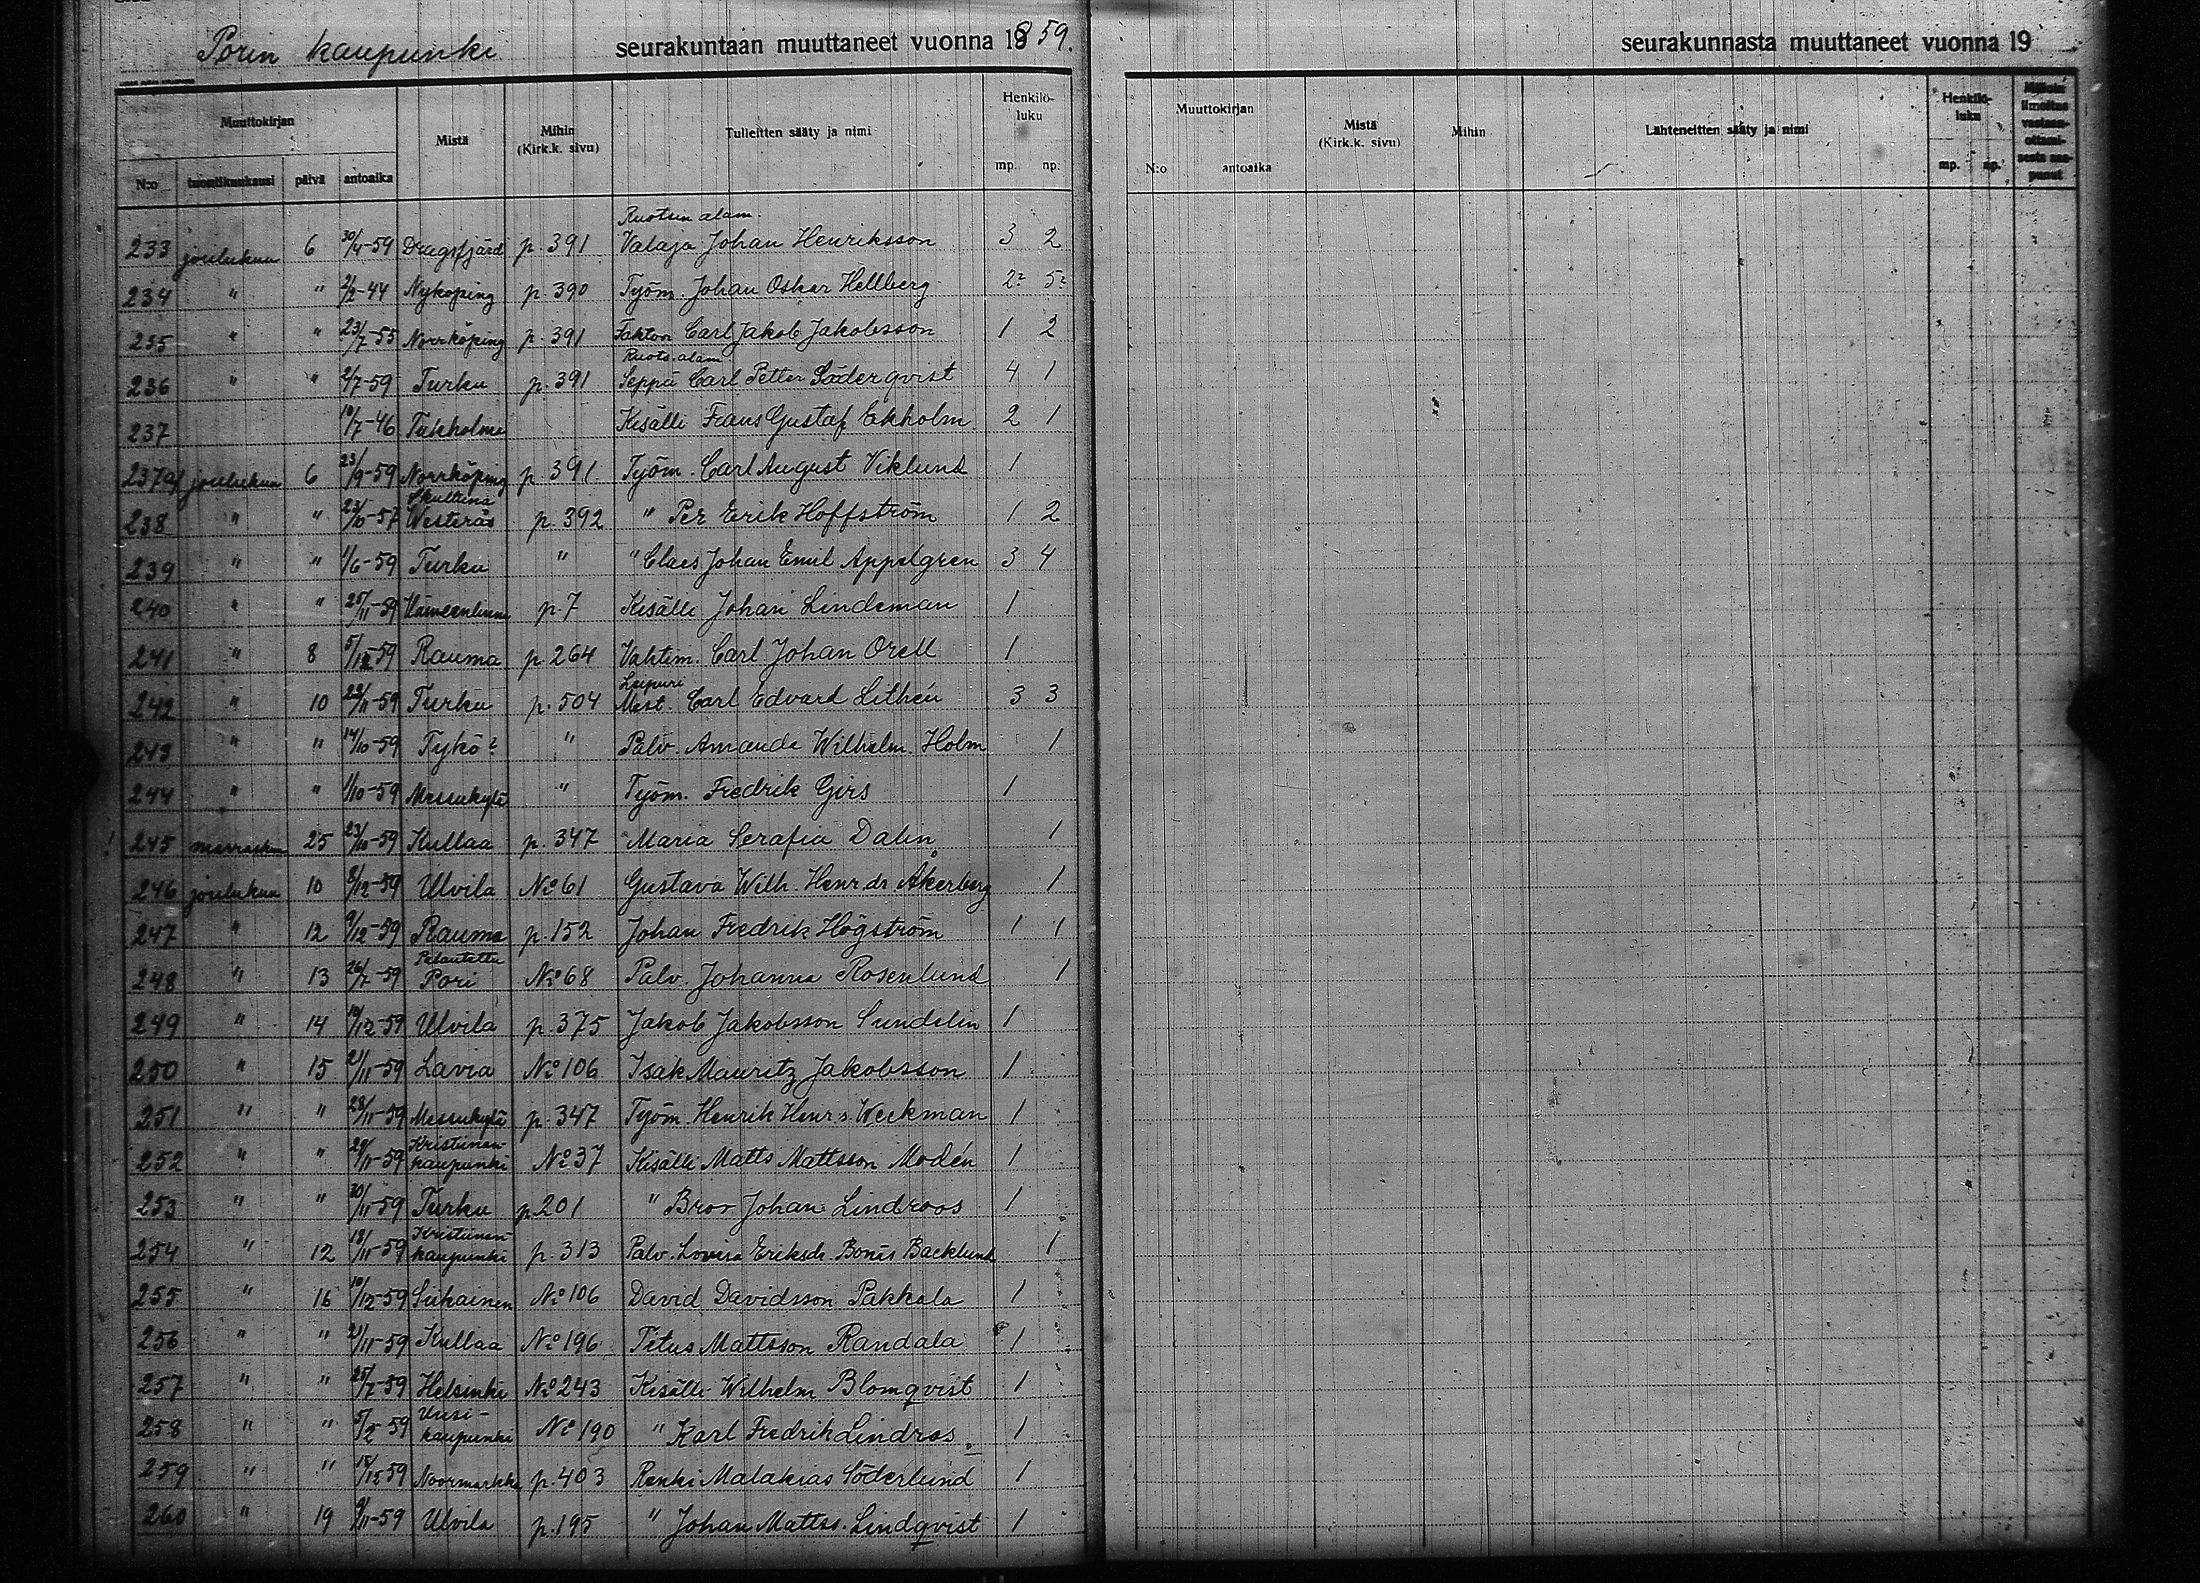 Porin kaupunki seurakuntaan muuttaneet vuonna 1859.
Muuttokirjan Mistä Mihin (Kirk.k. sivu) Tulleitten sääty ja nimi Henkilöluku
N:o tuontikuukausi päivä antoaika mp. np.
Ruotsin alam.
233 joulukuu 6 30/4-59 Dragsfjärd p. 391 Valaja Johan Henriksson 3 2
234 " " 2/2-44 Nyköping p. 390 Työm. Johan Oskar Hellberg 2? 5?
235 " " 23/7-55 Norrköping p. 391 Faktori Carl Jakob Jakobsson 1 2
Ruots. alam.
236 " " 2/7-59 Turku p. 391 Seppä Carl Petter Söderqvist 4 1
237 10/7-46 Tukholma Kisälli Frans Gustaf Ekholm 2 1
237a/ joulukuu 6 23/9-59 Norrköping p. 391. Työm. Carl August Viklund 1
Skultuna
238 " " 23/10-57 Westerås p. 392 " Per Erik Hoffström 1 2
239 " " 1/6-59 Turku " " Claes Johan Emil Appelgren 3 4
240 " " 25/11-59 Hämeenlinna p. 7 Kisälli Johan Lindeman 1
241 " 8 5/12-59 Rauma p. 264 Vahtim. Carl Johan Orell 1
Leipuri
242 " 10 22/11-59 Turku p. 504 Mest. Carl Edvard Lithén 3 3
243 " " 14/10-59 Tykö? " Palv. Amanda Wilhelm. Holm 1
244 " " 1/10-59 Messukylä " Työm. Fredrik Girs 1
! 245 marraskuu 25 23/10-59 Kullaa p. 347 Maria Serafia Dalin 1
246 joulukuu 10 8/12-59 Ulvila No 61 Gustava Wilh. Henr.dr Åkerberg 1
247 " 12 9/12-59 Rauma p. 152 Johan Fredrik Högström 1 1
Palautettu
248 " 13 26/7-59 Pori No 68 Palv. Johanna Rosenlund 1
249 " 14 10/12-59 Ulvila p. 375 Jakob Jakobsson Sundelin 1
250 " 15 21/11-59 Lavia No 106 Isak Mauritz Jakobsson 1
251 " " 28/11-59 Messukylä p. 347 Työm. Henrik Henr.s. Weckman 1
Kristiinan-
252 " " 29/11-59 kaupunki No 37 Kisälli Matts Mattsson Modén 1
253 " " 30/11-59 Turku p. 201 " Bror Johan Lindroos 1
Kristiinan-
254 " 12 18/11-59 kaupunki p. 313 Palv. Lovisa Eriksdr. Bonäs Backlund 1
255 " 16 10/12-59 Siikainen No 106 David Davidsson Pakkala 1
256 " " 21/11-59 Kullaa No 196 Titus Mattsson Randala 1
257 " " 25/7-59 Helsinki No 243 Kisälli Wilhelm Blomqvist 1
Uusi-
258 " " 5/2-59 kaupunki No 190 " Karl Fredrik Lindros 1
259 " " 15/12 59 Noormarkku p. 403 Renki Malakias Söderlund 1
260 " 19 9/11-59 Ulvila p. 195 " Johan Mattss. Lindqvist 1
seurakunnasta muuttaneet vuonna 19
Muuttokirjan Mistä (Kirk.k. sivu) Mihin Lähteneitten sääty ja nimi Henkilöluku Milloin ilmoitus vastaanottamisesta saapunut
N:o antoaika mp. np.